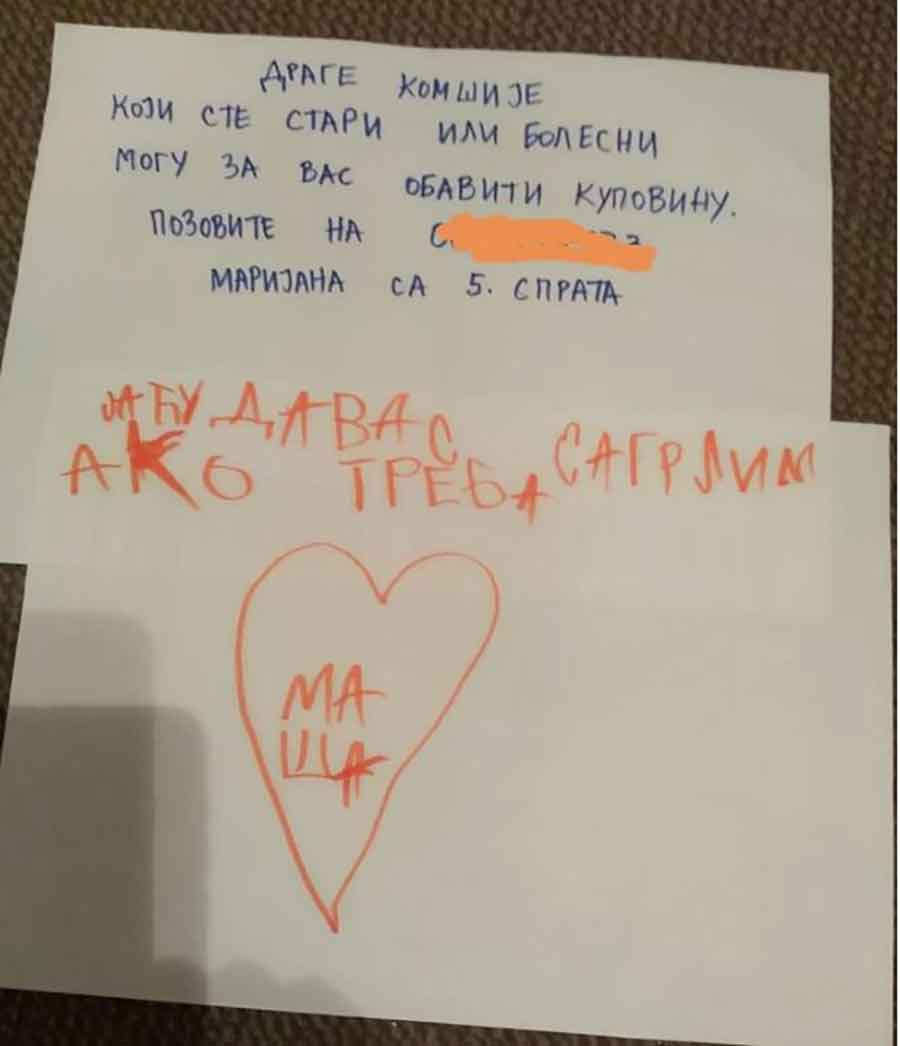 ДРАГЕ КОМШИЈЕ
КОЈИ СТЕ СТАРИ ИЛИ БОЛЕСНИ
МОГУ ЗА ВАС ОБАВИТИ КУПОВИНУ.
ПОЗОВИТЕ НА
МАРИЈАНА СА 5. СПРАТА
ЈА ЋУ ДА ВАС САГРЛИМ
АКО ТРЕБА
МА
ША